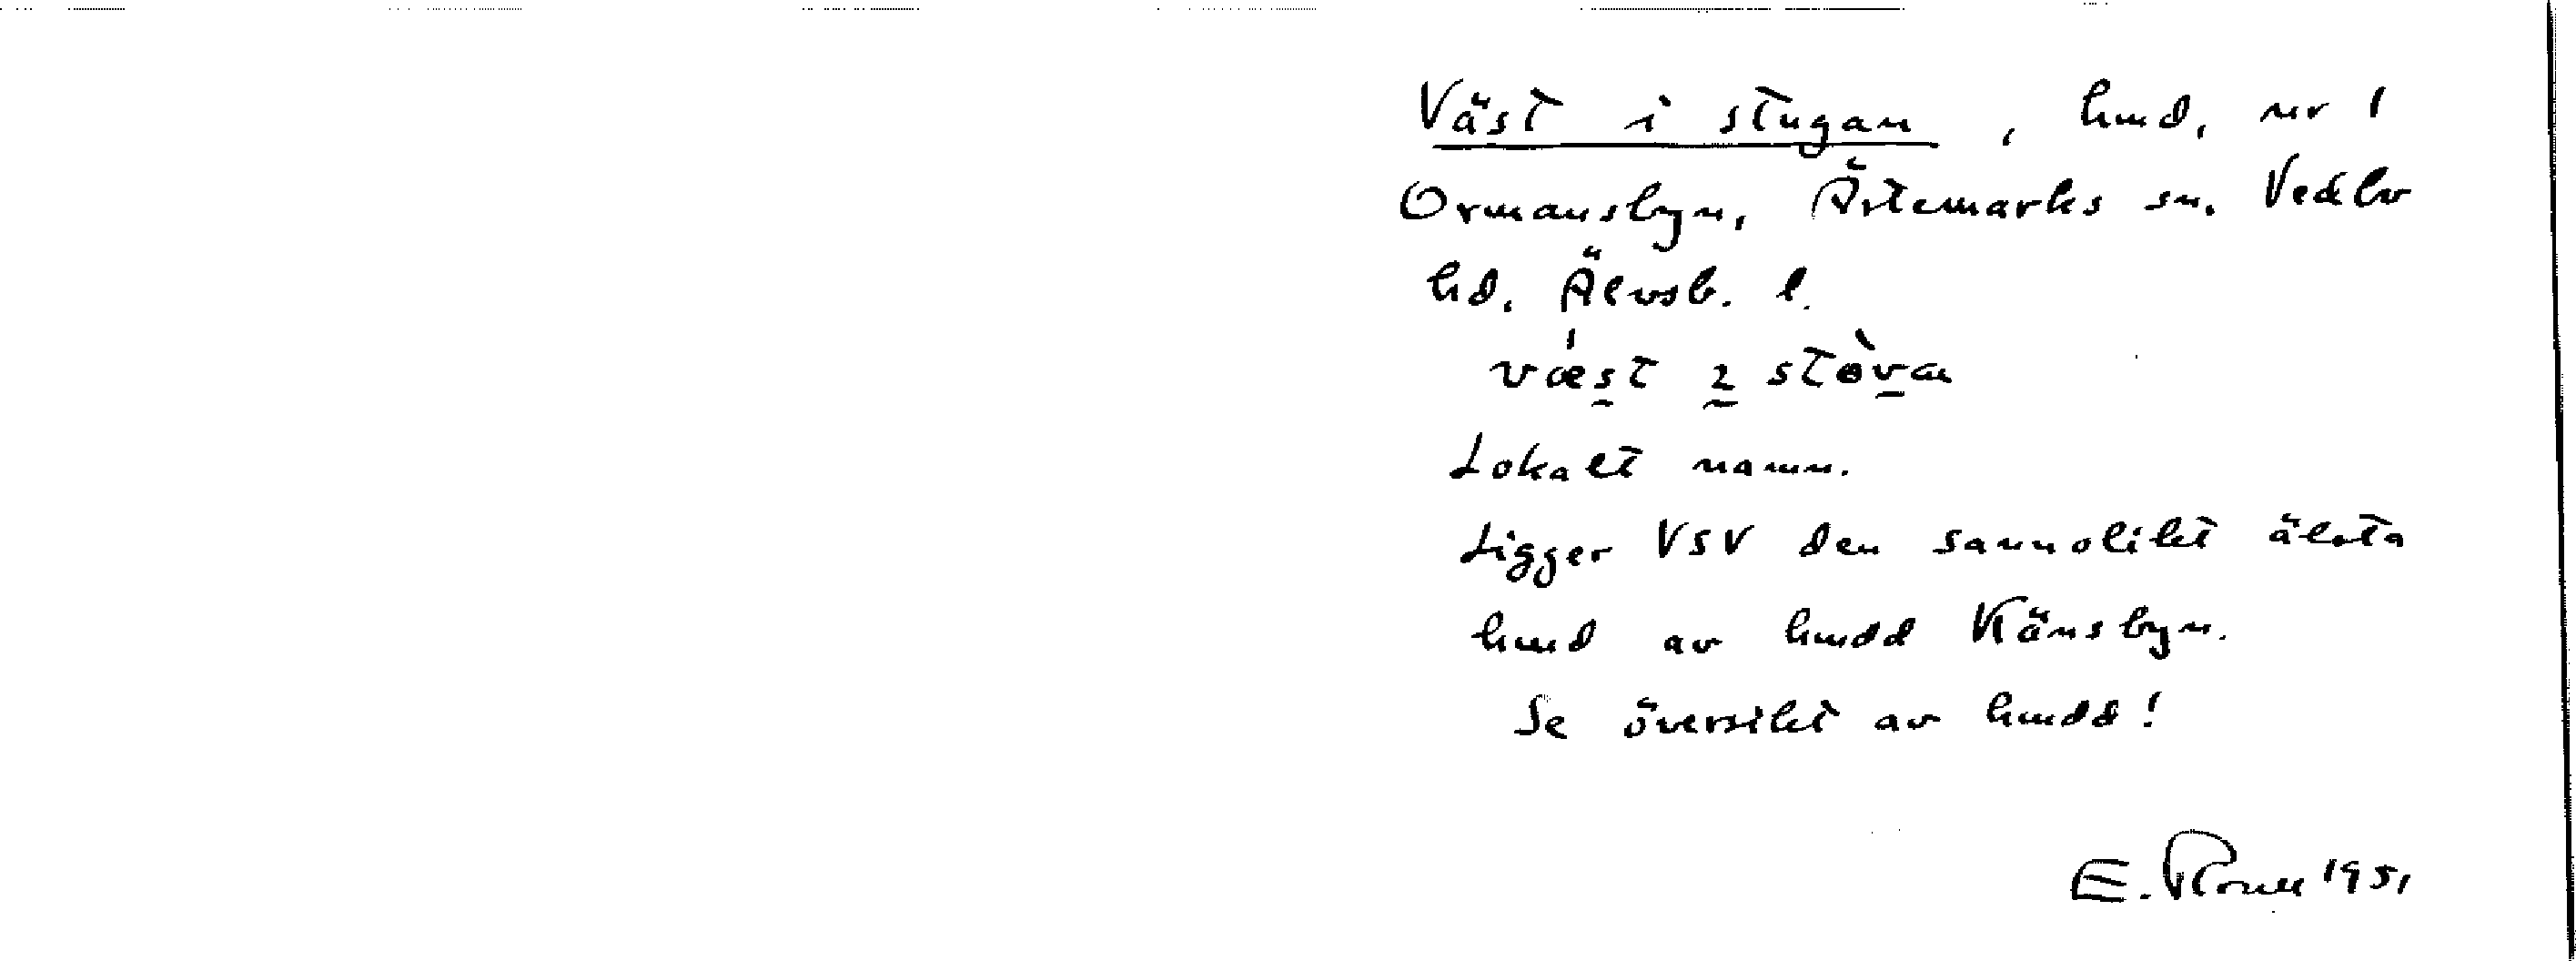 Väst i stugan, hmd, nr 1
Ormansbyn, Ärtemarks sn. Vedbo
hd. Älvsb. l.
væst ı stòva
Lokalt namn.
Ligger VSV den sannolikt älsta
hmd av hmdd Känsbyn.
Se översikt av hmdd!
E. 1951